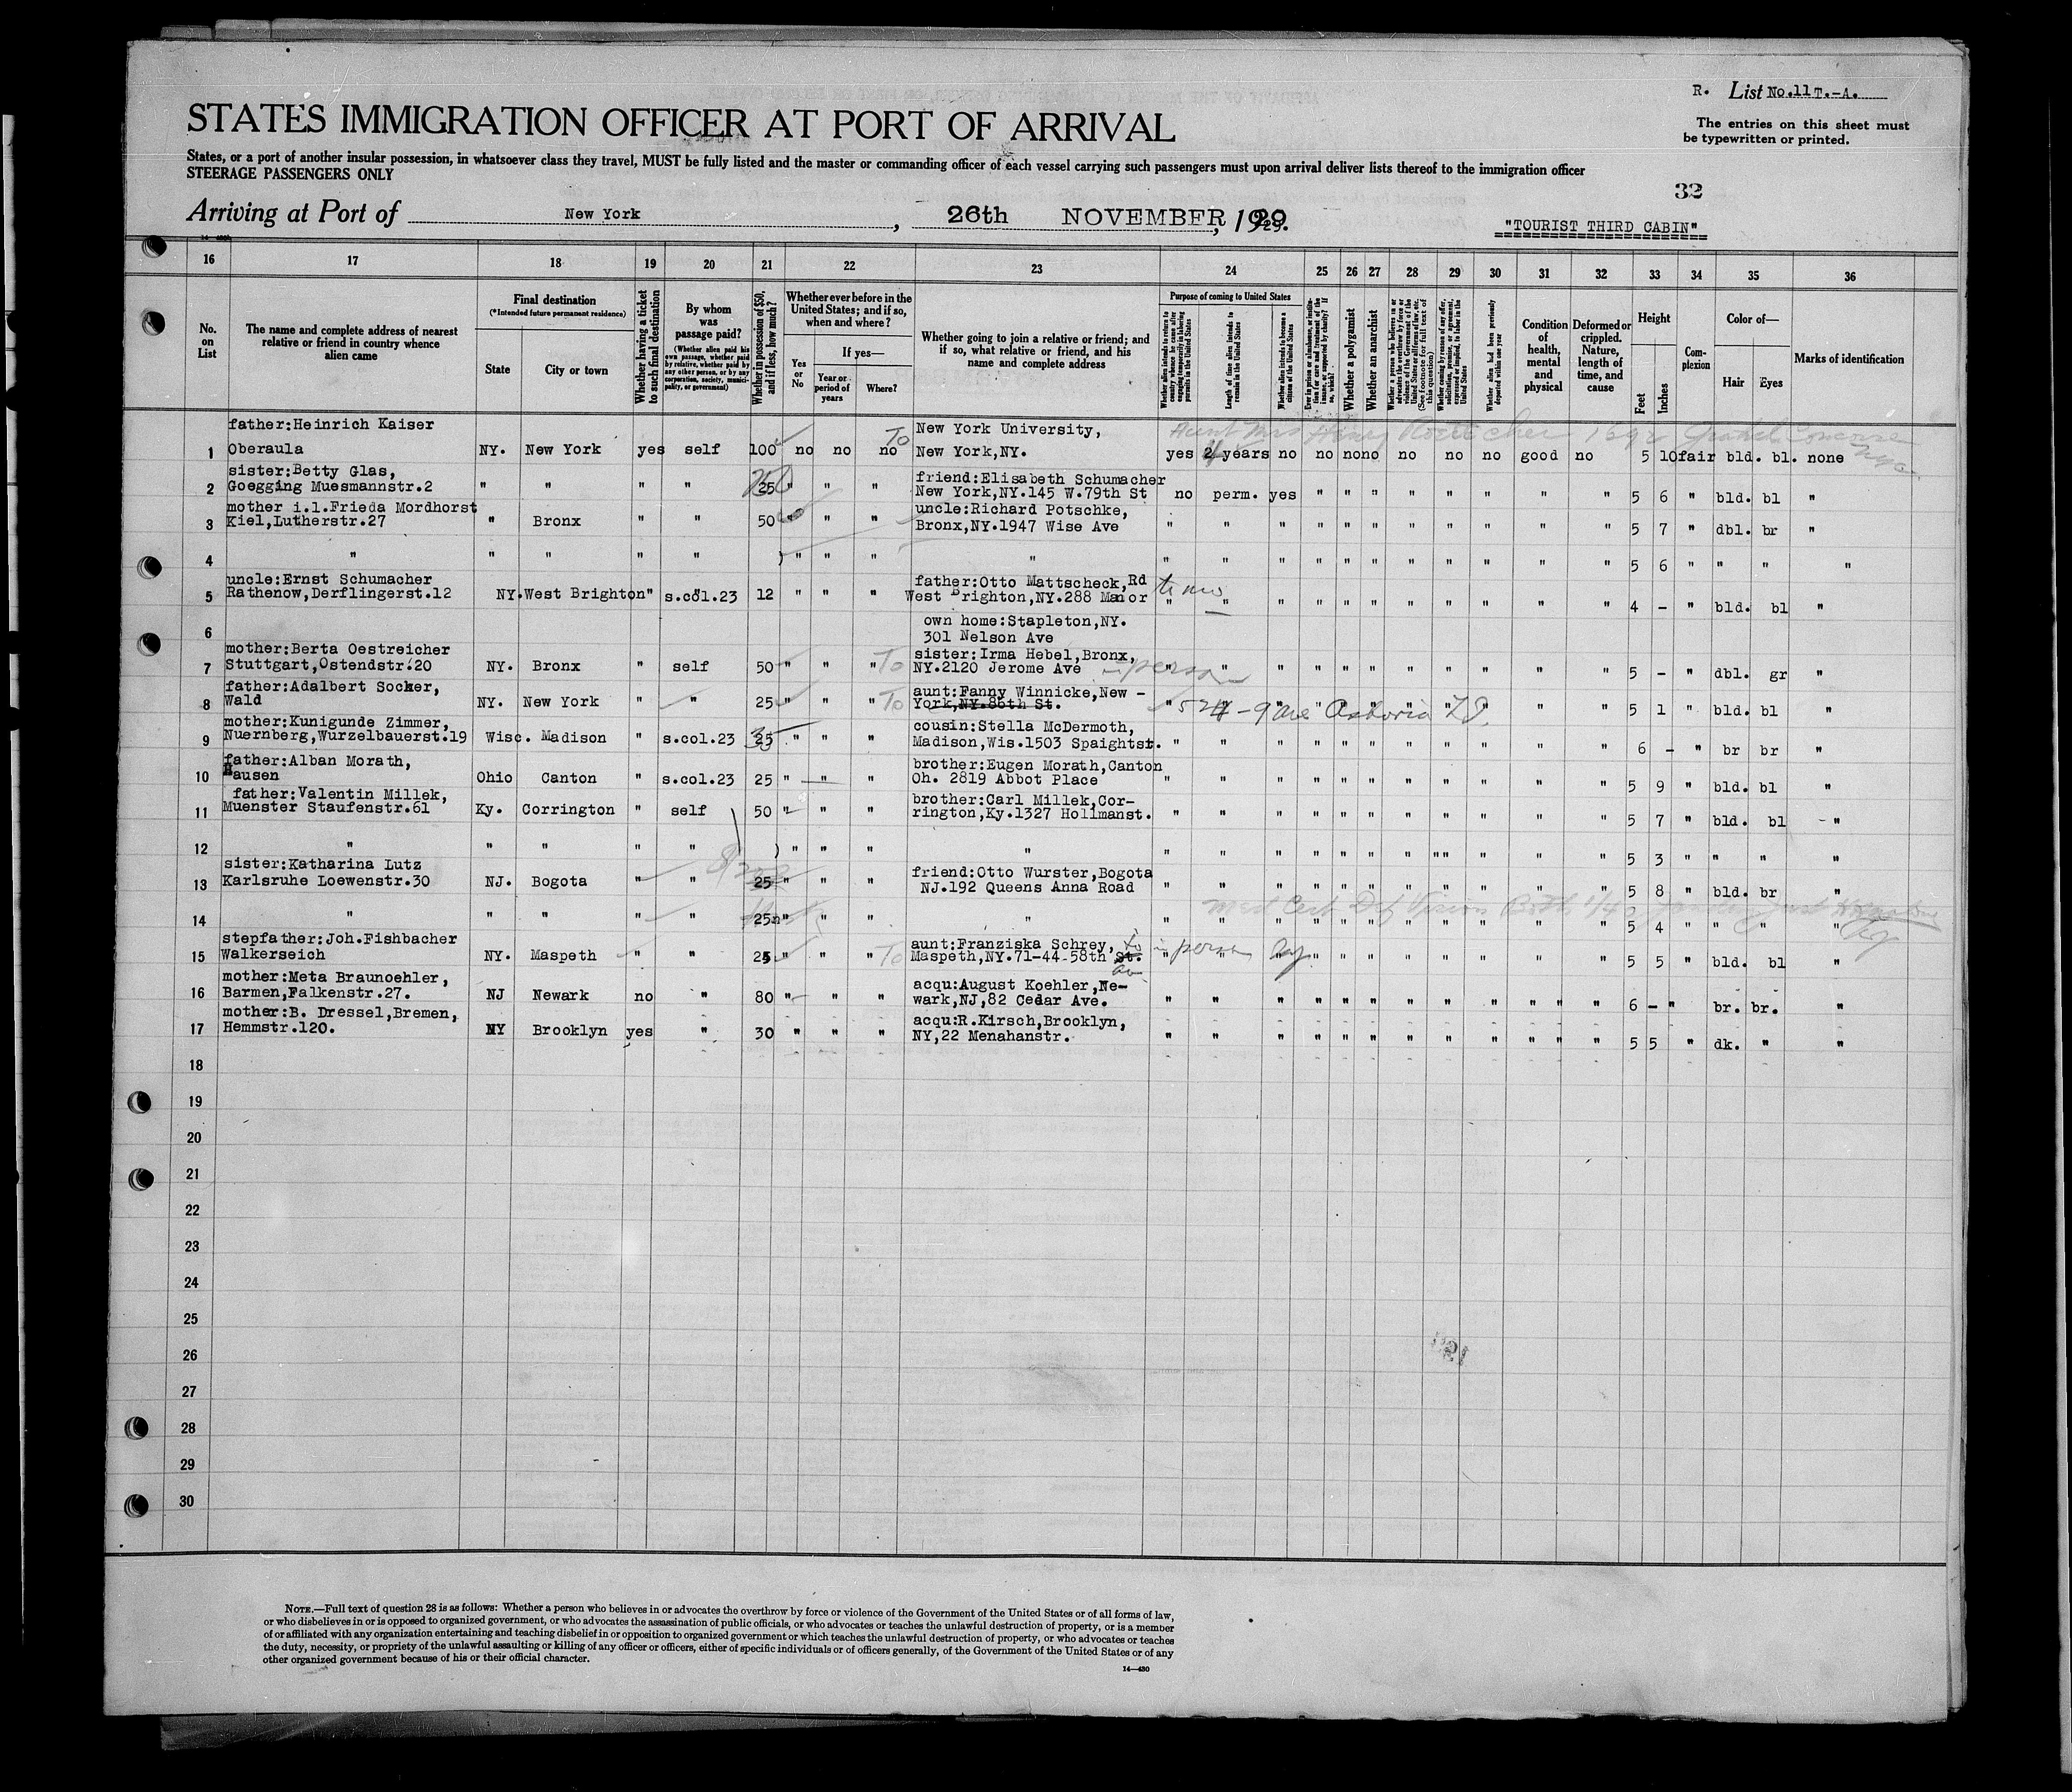 R. List No.11 T.-A.
STATES IMMIGRATION OFFICER AT PORT OF ARRIVAL
The entries on this sheet must
be typewritten or printed.
States, or a port of another insular possession, in whatsoever class they travel, MUST be fully listed and the master or commanding officer of each vessel carrying such passengers must upon arrival deliver lists thereof to the immigration officer
STEERAGE PASSENGERS ONLY
32
Arriving at Port of New York, 26th NOVEMBER, 1929.
"TOURIST THIRD CABIN"
16 17 18 19 20 21 22 23 24 25 26 27 28 29 30 31 32 33 34 35 36
No. on List
The name and complete address of nearest relative or friend in country whence alien came
Final destination
(*Intended future permanent residence)
State
City or town
Whether having a ticket to such final destination
By whom was passage paid?
(Whether alien paid his own passage, whether paid by relative, whether paid by any other person, or by any corporation, society, municipality, or government)
Whether in possession of $50, and if less, how much?
Whether ever before in the United States; and if so, when and where?
Yes or No
If yes—
Year or period of years
Where?
Whether going to join a relative or friend; and if so, what relative or friend, and his name and complete address
Purpose of coming to United States
Length of time alien intends to remain in the United States
Whether alien intends to become a citizen of the United States
Whether a polygamist
Whether an anarchist
Whether alien had been previously deported within one year
Condition of health, mental and physical
Deformed or crippled. Nature, length of time, and cause
Height
Feet
Inches
Complexion
Color of—
Hair
Eyes
Marks of identification
father:Heinrich Kaiser New York University,
1 Oberaula NY. New York yes self 100 no no no To New York,NY. yes years no no no no no no no good no 5 10 fair bld. bl. none
sister:Betty Glas, friend:Elisabeth Schumacher
2 Goegging Muesmannstr.2 " " " " 25 " " " New York,NY.145 W.79th St no perm. yes " " " " " " " " 5 6 " bld. bl "
mother i.l.Frieda Mordhorst uncle:Richard Potschke,
3 Kiel,Lutherstr.27 " Bronx " " 50 " " " Bronx,NY.1947 Wise Ave " " " " " " " " " " " 5 7 " dbl. br "
4 " " " " " ) " " " " " " " " " " " " " " " 5 6 " " " "
uncle:Ernst Schumacher father:Otto Mattscheck,Rd
5 Rathenow,Derflingerst.12 NY. West Brighton " s.col.23 12 " " " West Brighton,NY.288 Manor " " " " " " " " " " " 4 - " bld. bl "
own home:Stapleton,NY.
6 301 Nelson Ave
mother:Berta Oestreicher sister:Irma Hebel,Bronx,
7 Stuttgart,Ostendstr.20 NY. Bronx " self 50 " " " To NY.2120 Jerome Ave in person " " " " " " " " " " " 5 - " dbl. gr "
father:Adalbert Socker, aunt:Fanny Winnicke,New -
8 Wald NY. New York " " 25 " " " To York,NY.86th St. " 524 - 9 Ave Astoria " " " " " " " " 5 1 " bld. bl "
mother:Kunigunde Zimmer, cousin:Stella McDermoth,
9 Nuernberg,Wurzelbauerst.19 Wisc. Madison " s.col.23 35 " " " Madison,Wis.1503 Spaightst. " " " " " " " " " " " 6 - " br br "
father:Alban Morath, brother:Eugen Morath,Canton
10 Hausen Ohio Canton " s.col.23 25 " " " Oh. 2819 Abbot Place " " " " " " " " " " " 5 9 " bld. bl "
father:Valentin Millek, brother:Carl Millek,Cor-
11 Muenster Staufenstr.61 Ky. Corrington " self 50 " " " rington,Ky.1327 Hollmanst. " " " " " " " " " " " 5 7 " bld. bl "
12 " " " " " ) " " " " " " " " " " " " " " " " 5 3 " " " "
sister:Katharina Lutz friend:Otto Wurster,Bogota
13 Karlsruhe Loewenstr.30 NJ. Bogota " " 25 " " " NJ.192 Queens Anna Road " " " " " " " " " " " 5 8 " bld. br "
14 " " " " " 25 " " " " " " " " " " " " " " " 5 4 " " " "
stepfather:Joh.Fishbacher aunt:Franziska Schrey, to
15 Walkerseich NY. Maspeth " " 25 " " " To Maspeth,NY.71-44-58th St. Av in person " " " " " " " " " " 5 5 " bld. bl "
mother:Meta Braunoehler, acqu:August Koehler,Ne-
16 Barmen,Falkenstr.27. NJ Newark no " 80 " " " wark,NJ,82 Cedar Ave. " " " " " " " " " " " " 6 - " br. br. "
mother:B. Dressel,Bremen, acqu:R.Kirsch,Brooklyn,
17 Hemmstr.120. NY Brooklyn yes " 30 " " " NY,22 Menahanstr. " " " " " " " " " " " " 5 5 " dk. " "
18
19
20
21
22
23
24
25
26
27
28
29
30
NOTE.—Full text of question 28 is as follows: Whether a person who believes in or advocates the overthrow by force or violence of the Government of the United States or of all forms of law,
or who disbelieves in or is opposed to organized government, or who advocates the assassination of public officials, or who advocates or teaches the unlawful destruction of property, or is a member
of or affiliated with any organization entertaining and teaching disbelief in or opposition to organized government or which teaches the unlawful destruction of property, or who advocates or teaches
the duty, necessity, or propriety of the unlawful assaulting or killing of any officer or officers, either of specific individuals or of officers generally, of the Government of the United States or of any
other organized government because of his or their official character.
14—480